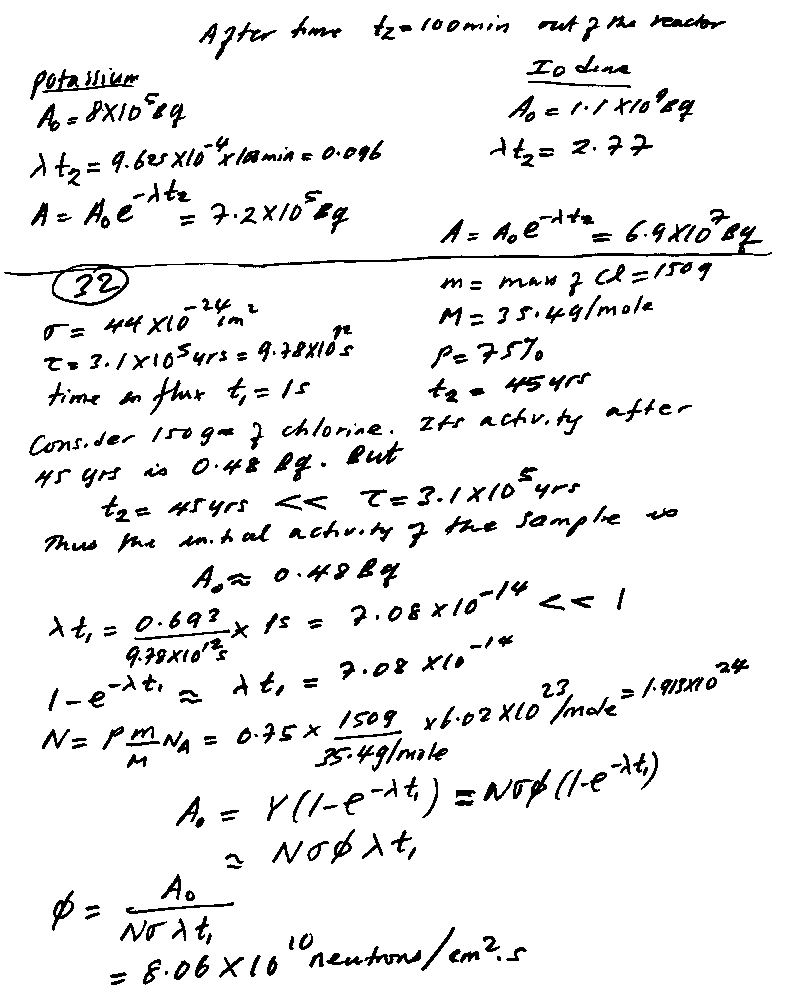 After time t₂=100min out of the reactor
Potassium
A₀=8X10⁵Bq
λt₂=9.625X10⁻⁴x100min=0.096
A=A₀e^-λt₂=7.2X10⁵Bq
Iodine
A₀=1.1X10⁹Bq
λt₂=2.77
A=A₀e^-λt₂=6.9X10⁷Bq
32
σ=44X10⁻²⁴cm²
τ=3.1X10⁵yrs=9.78X10¹²s
time in flux t₁=1s
m=mass of Cl=150g
M=35.4g/mole
P=75%
t₂=45yrs
Consider 150gm of chlorine. Its activity after
45 yrs is 0.48 Bq. But
t₂=45yrs << τ=3.1X10⁵yrs
Thus the initial activity of the sample is
A₀≈0.48Bq
λt₁=0.693/9.78X10¹²s x 1s=7.08X10⁻¹⁴<<1
1-e^-λt₁≈λt₁=7.08X10⁻¹⁴
N=P m/M N_A=0.75x 150g/35.4g/mole x6.02X10²³/mole=1.913X10²⁴
A₀=Y(1-e^-λt₁)=Nσφ(1-e^-λt₁)
≈Nσφλt₁
φ=A₀/Nσλt₁
=8.06X10¹⁰neutrons/cm².s